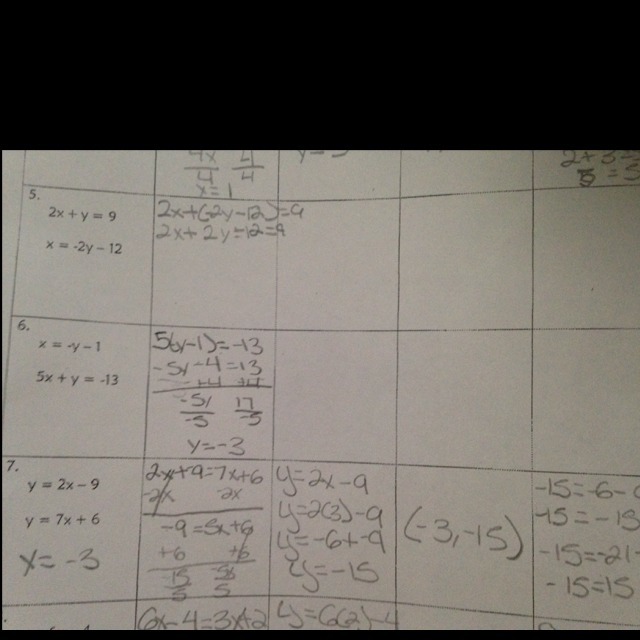 4x 4
4 4
x = 1
5.
2x + y = 9
x = -2y - 12
2x+(-2y-12)=9
2x+2y-12=9
6.
x = -y - 1
5x + y = -13
5(y-1)=-13
-5y-4=13
y=-3
7.
y = 2x - 9
y = 7x + 6
x = -3
2x+9=7x+6
2x 2x
-9=5x+6
+6 +6
y=2x-9
y=2(3)-9
y=-6+-9
y=-15
(-3,-15)
-15=-6-
-15=-21-
-15=15
6x-4=3x+2
y=6(2)-4